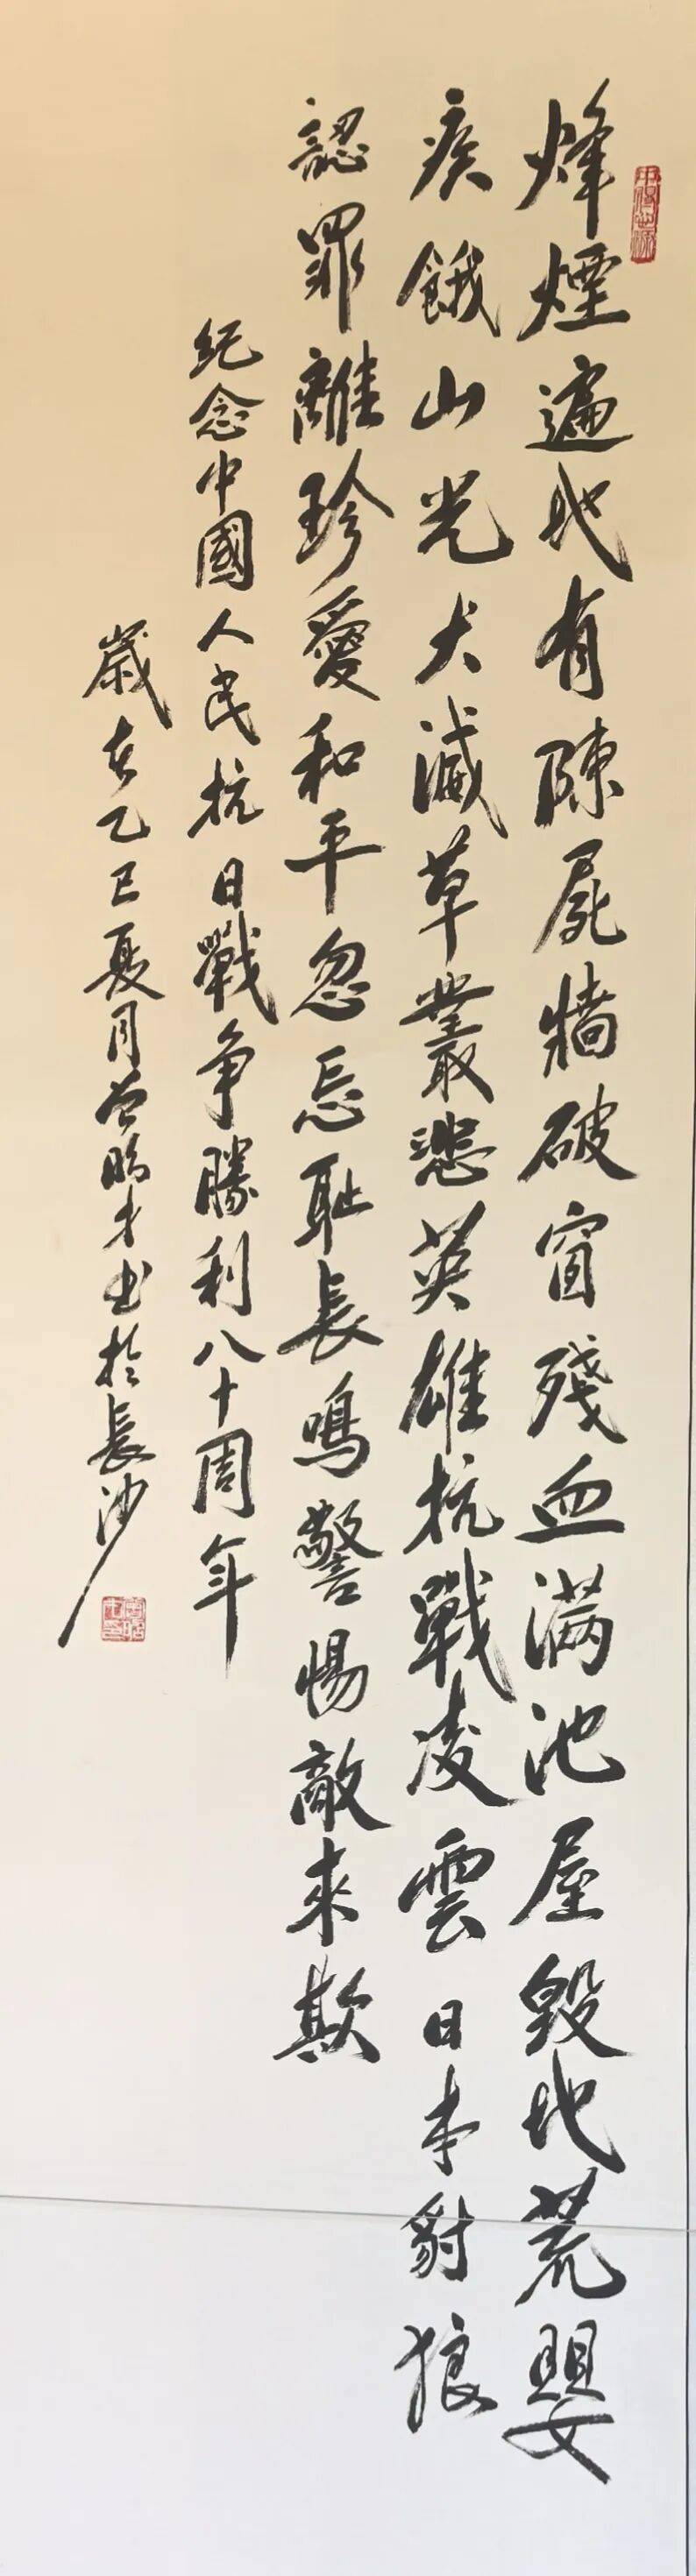 烽煙遍地有陳屍牆破窗殘血滿池屋毀地荒嬰
疾餓山光犬滅草叢悲英雄抗戰凌雲日本豺狼
認罪離珍愛和平忽忘恥長鳴警惕敵來欺
纪念中國人民抗日戰争勝利八十周年
歲在乙巳夏月曾昭才书於長沙